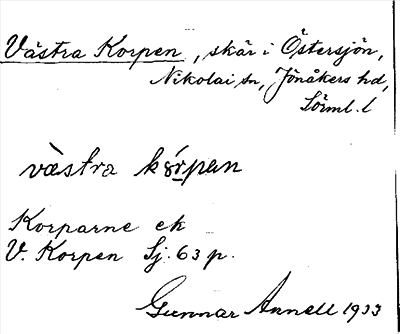 Västra Korpen, skär i Östersjön,
Nikolai sn, Jönåkers hd,
Sörml. l
västra kòrpan
Korparne ek
V. Korpen Sj. 63 p.
Gunnar Annell 1933